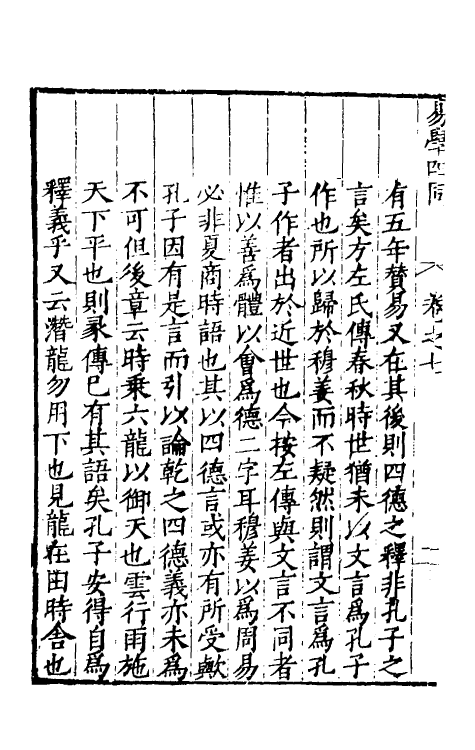 易學四同 卷之七 二
有五年贊易又在其後則四德之釋非孔子之
言矣方左氏傳春秋時世猶未以文言為孔子
作也所以歸於穆姜而不疑然則謂文言為孔
子作者出於近世也今按左傳與文言不同者
惟以善為體以會為德二字耳穆姜以為周易
必非夏商時語也其以四德言或亦有所受歟
孔子因有是言而引以論乾之四德義亦未為
不可但後章云時乗六龍以御天也雲行雨施
天下平也則彖傳已有其語矣孔子安得自為
釋義乎又云潛龍勿用下也見龍在田時舍也